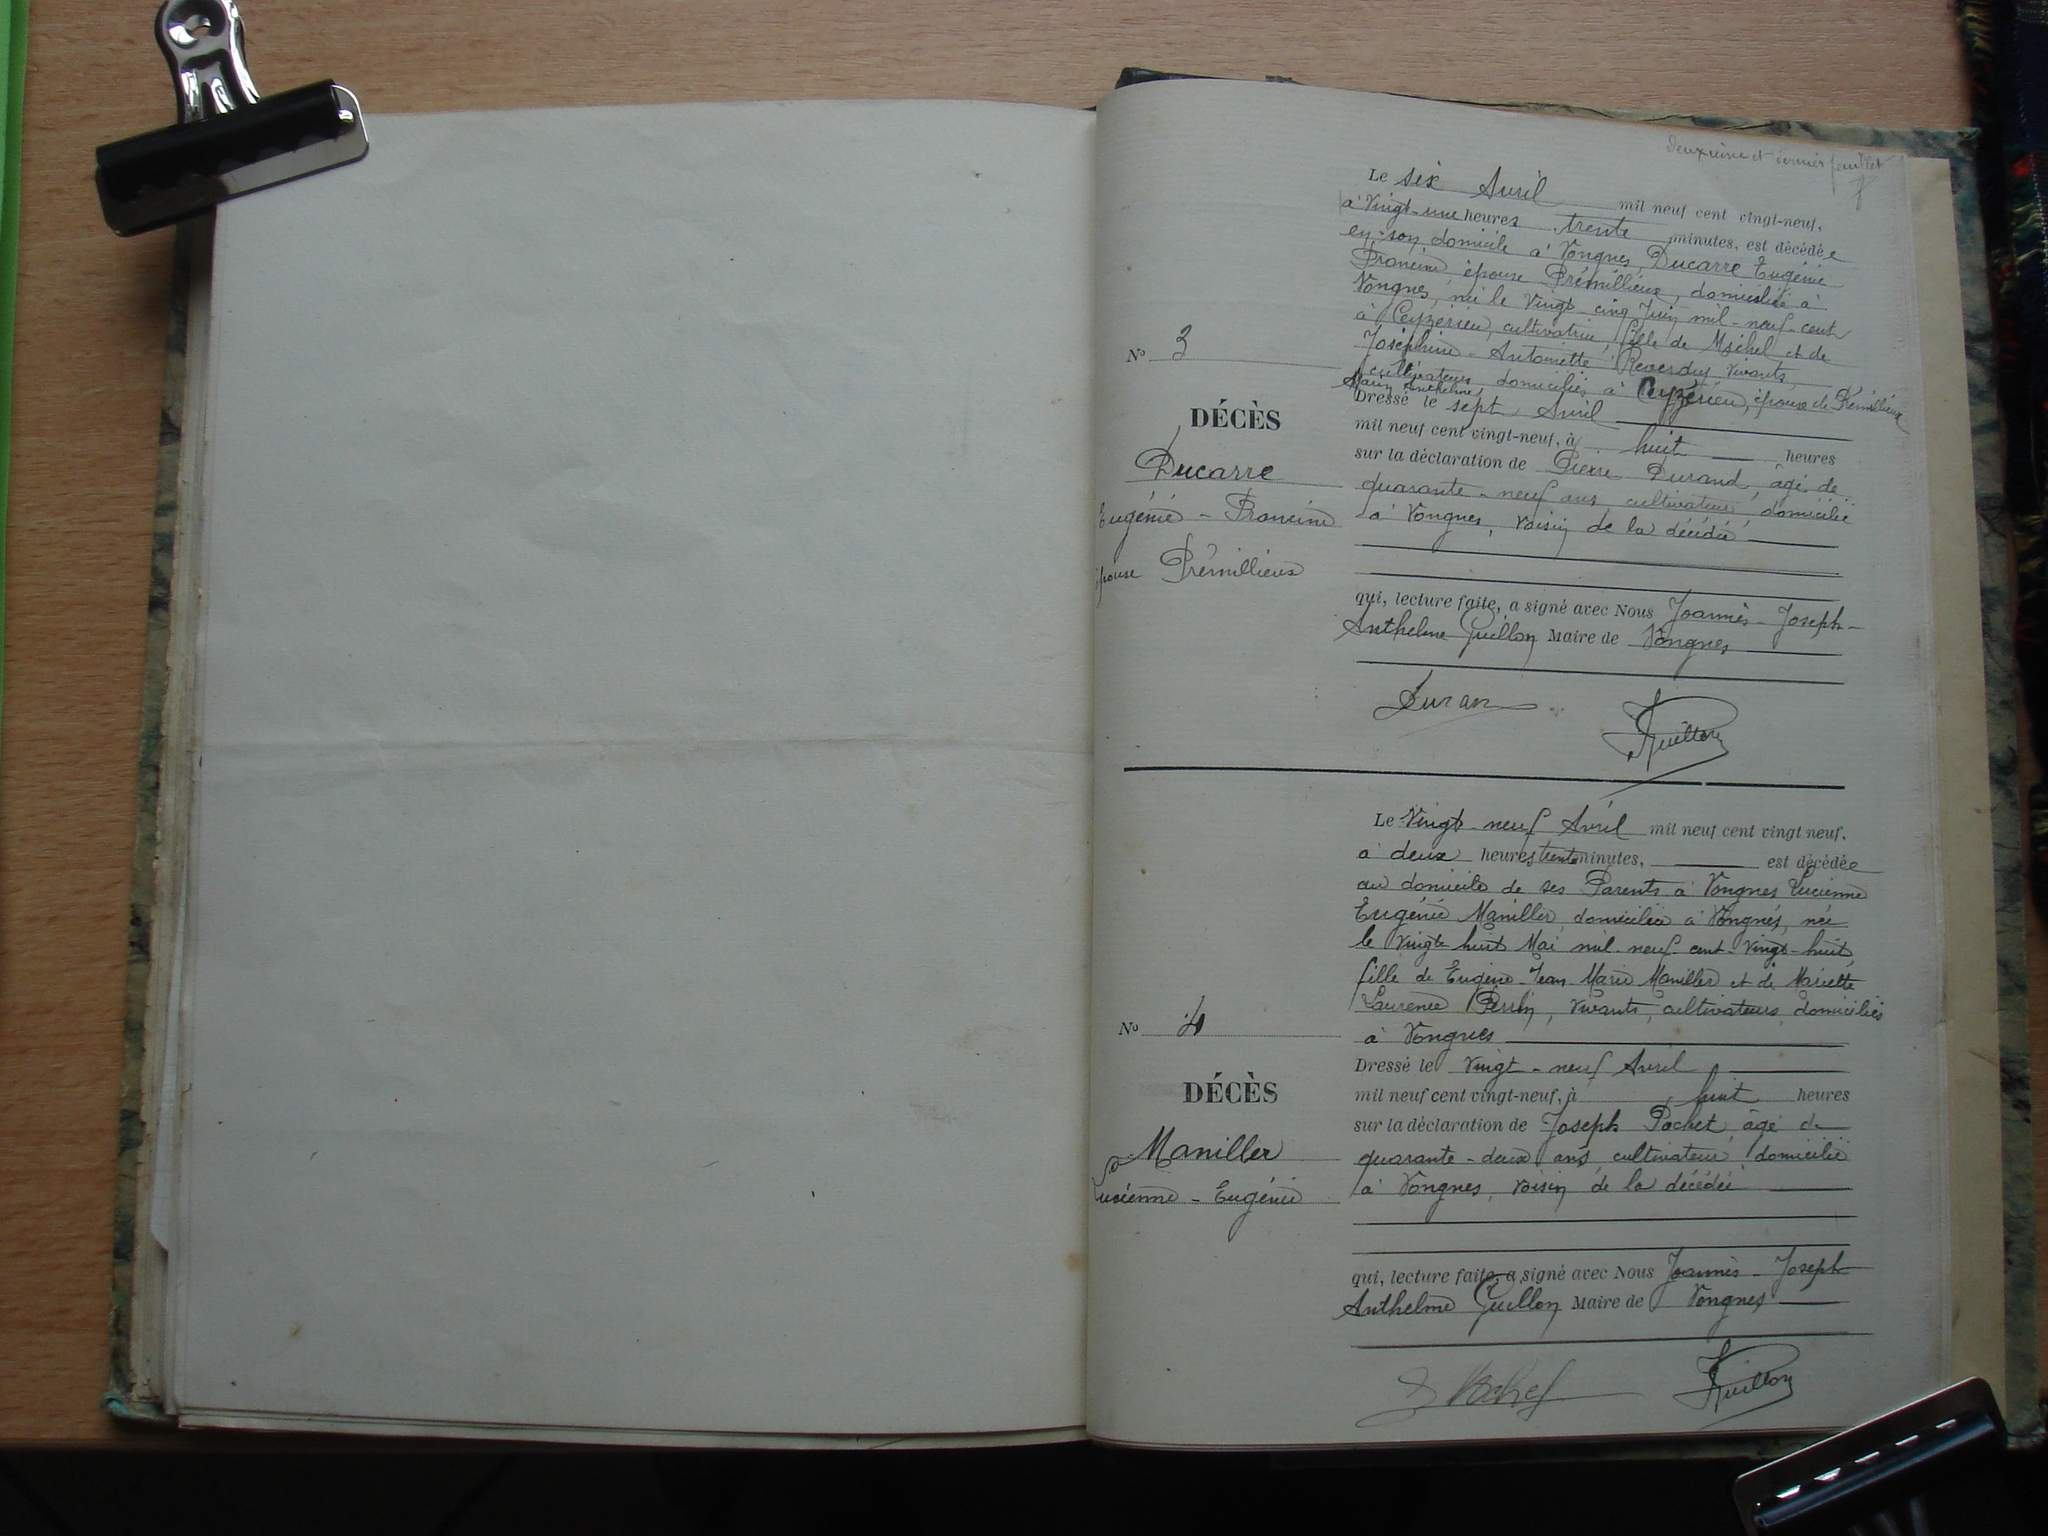 Deuxième et dernier feuillet
Le six Avril mil neuf cent vingt-neuf,
à Vingt-une heures trente minutes, est décédée
en son domicile à Vongnes, Ducarre Eugénie
Francine épouse Prémillieux, domiciliée à
Vongnes, née le Vingt-cinq Juin mil-neuf-cent
à Ceyzérieu, cultivatrice, fille de Michel et de
Joséphine-Antoinette Reverdy, vivants,
cultivateurs domiciliés à Ceyzérieu, épouse de Prémillieux
Marin Anthelme
Dressé le sept Avril
mil neuf cent vingt-neuf, à huit heures
sur la déclaration de Pierre Durand, âgé de
quarante-neuf ans, cultivateur, domicilié
à Vongnes, voisin de la décédée
qui, lecture faite, a signé avec Nous Joannès-Joseph-
Anthelme Guillon Maire de Vongnes
Duran
JGuillon
No 3
DÉCÈS
Ducarre
Eugénie - Francine
épouse Prémillieux
Le Vingt-neuf Avril mil neuf cent vingt neuf,
à deux heures trente minutes, est décédée
au domicile de ses Parents à Vongnes Lucienne
Eugénie Maniller, domiciliée à Vongnes, née
le vingt huit Mai mil-neuf-cent-vingt-huit,
fille de Eugène-Jean-Marie Maniller et de Mariette
Laurence Perrin, vivants, cultivateurs, domiciliés
à Vongnes
Dressé le Vingt-neuf Avril
mil neuf cent vingt-neuf, à huit heures
sur la déclaration de Joseph Pochet, âgé de
quarante-deux ans, cultivateur, domicilié
à Vongnes, voisin de la décédée
qui, lecture faite, a signé avec Nous Joannès-Joseph
Anthelme Guillon Maire de Vongnes
JGuillon
No 4
DÉCÈS
Maniller
Lucienne - Eugénie